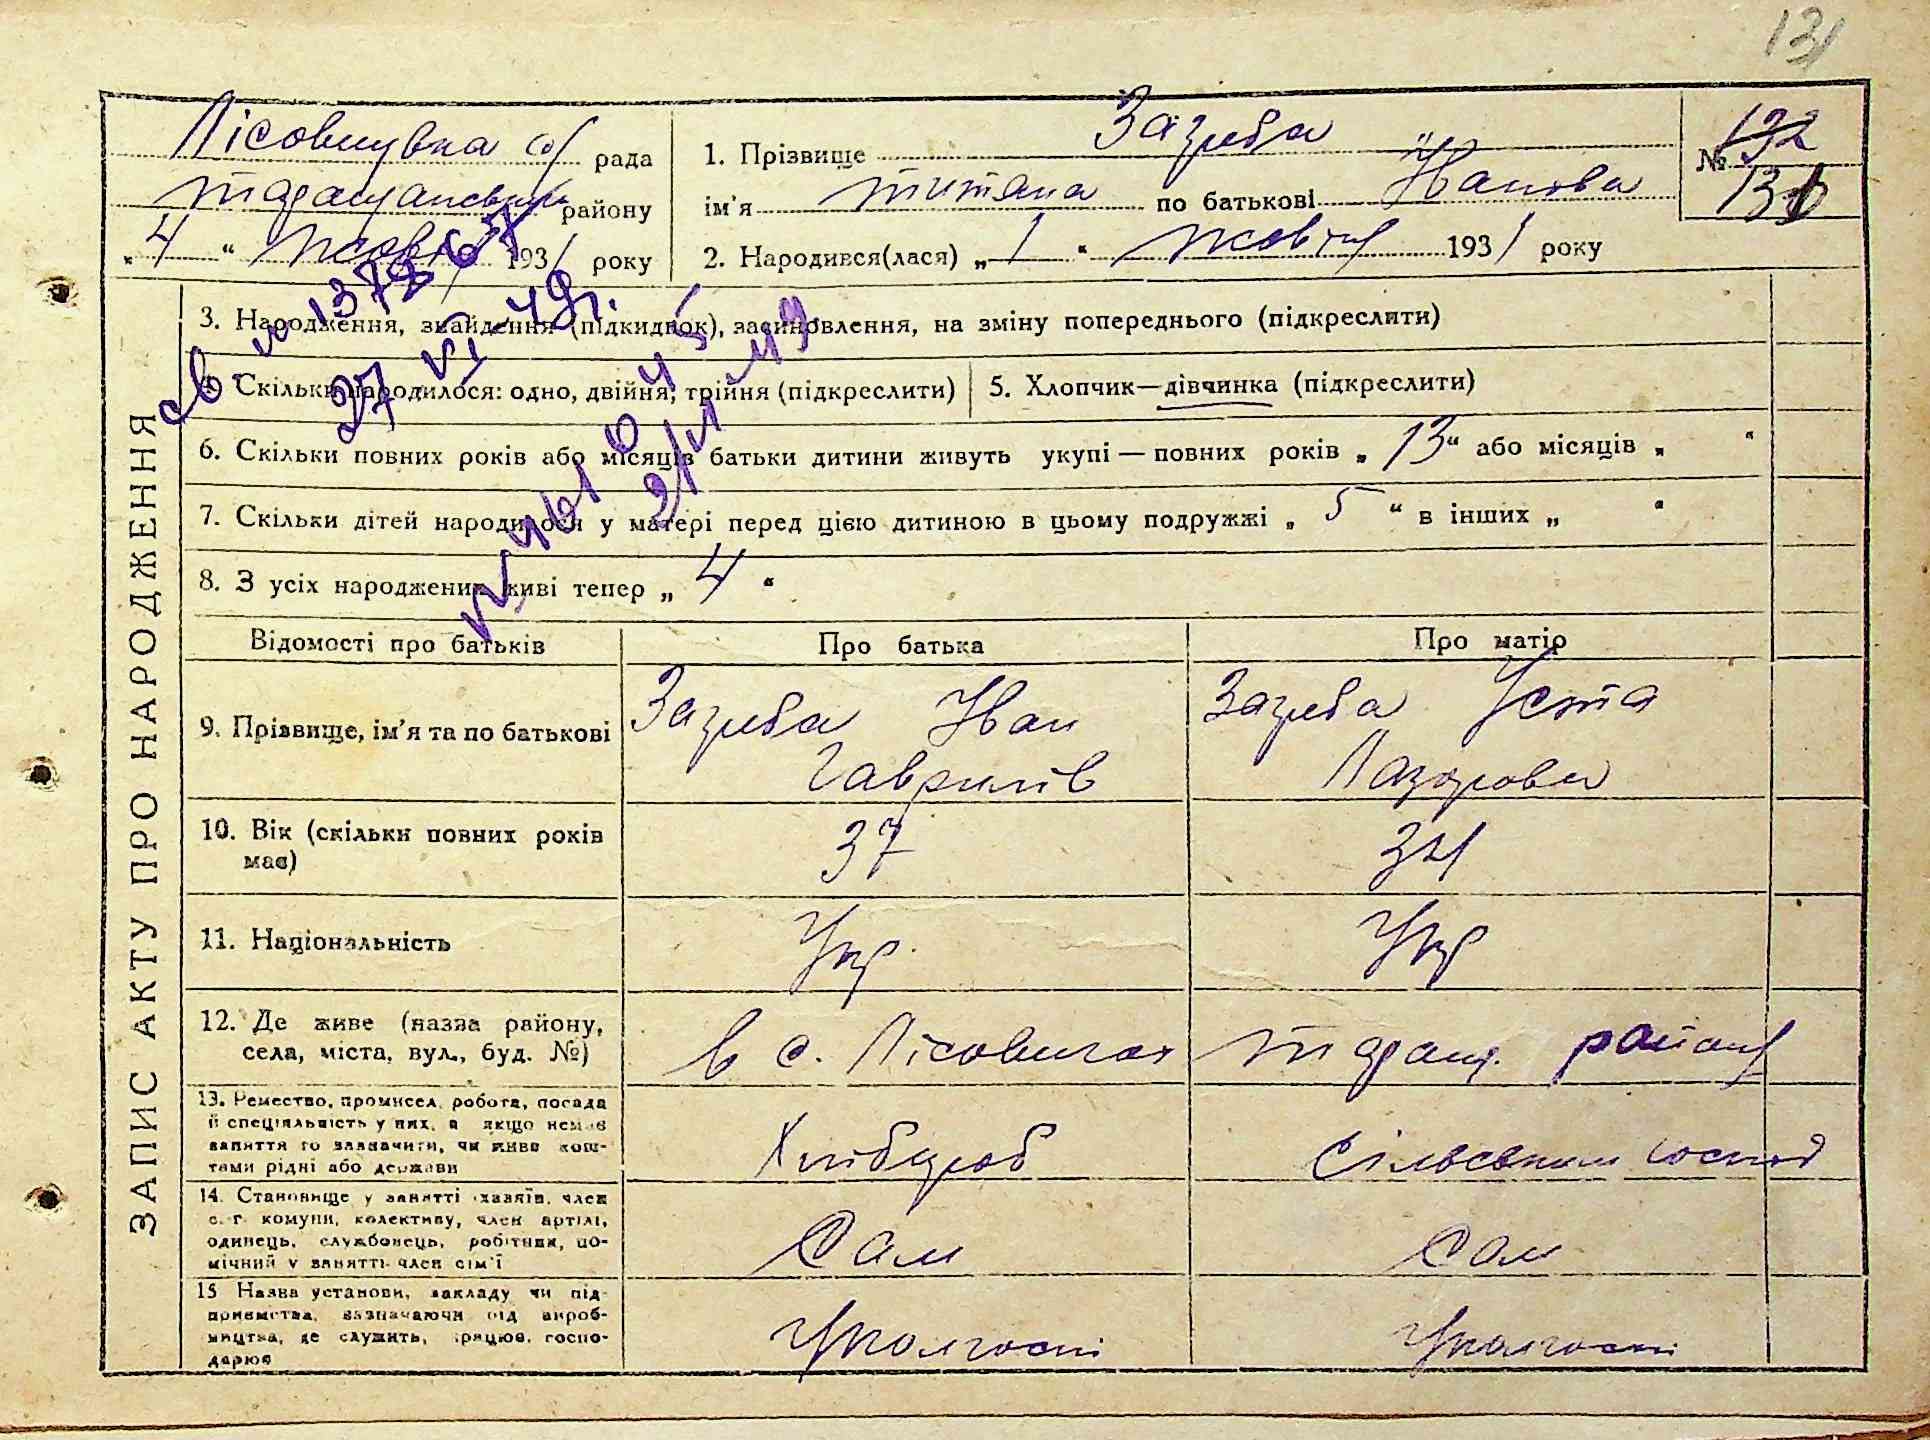 131
Лісовицька с/ рада
Таращанськ району
„ 4 “ жовт 1931 року
1. Прізвище Зазуба
ім'я Титяна по батькові Іванова
2. Народився(лася) „ 1 “ жовтня 1931 року
№ 132
131
3. Народження, знайдення (підкидьок), засиновлення, на зміну попереднього (підкреслити)
4. Скільки народилося: одно, двійня, трійня (підкреслити)
5. Хлопчик—дівчинка (підкреслити)
6. Скільки повних років або місяців батьки дитини живуть укупі — повних років „ 13 “ або місяців „ “
7. Скільки дітей народилося у матері перед цією дитиною в цьому подружжі „ 5 “ в інших „ “
8. З усіх народжених живі тепер „ 4 “
27 VI 49 г.
ЗАПИС АКТУ ПРО НАРОДЖЕННЯ
Відомості про батьків
Про батька
Про матір
9. Прізвище, ім'я та по батькові
Зазуба Іван
Гаврилів
Зазуба Устя
Лазорова
10. Вік (скільки повних років
має)
37
34
11. Національність
Укр.
Укр
12. Де живе (назва району,
села, міста, вул., буд. №)
в с. Лісовичах
Таращ. району
13. Ремество, промисел, робота, посада
й спеціяльність у них, а якщо немає
заняття то зазначити, чи живе кош-
тами рідні або держави
Хлібороб
Сільському господ
14. Становище у занятті хазяїн, член
с.-г. комуни, колективу, член артілі,
одинець, службовець, робітник, по-
мічний у занятті член сім'ї
Сам
Сам
15 Назва установи, закладу чи під-
приємства, зазначаючи рід вироб-
ництва, де служить, працює, госпо-
дарює